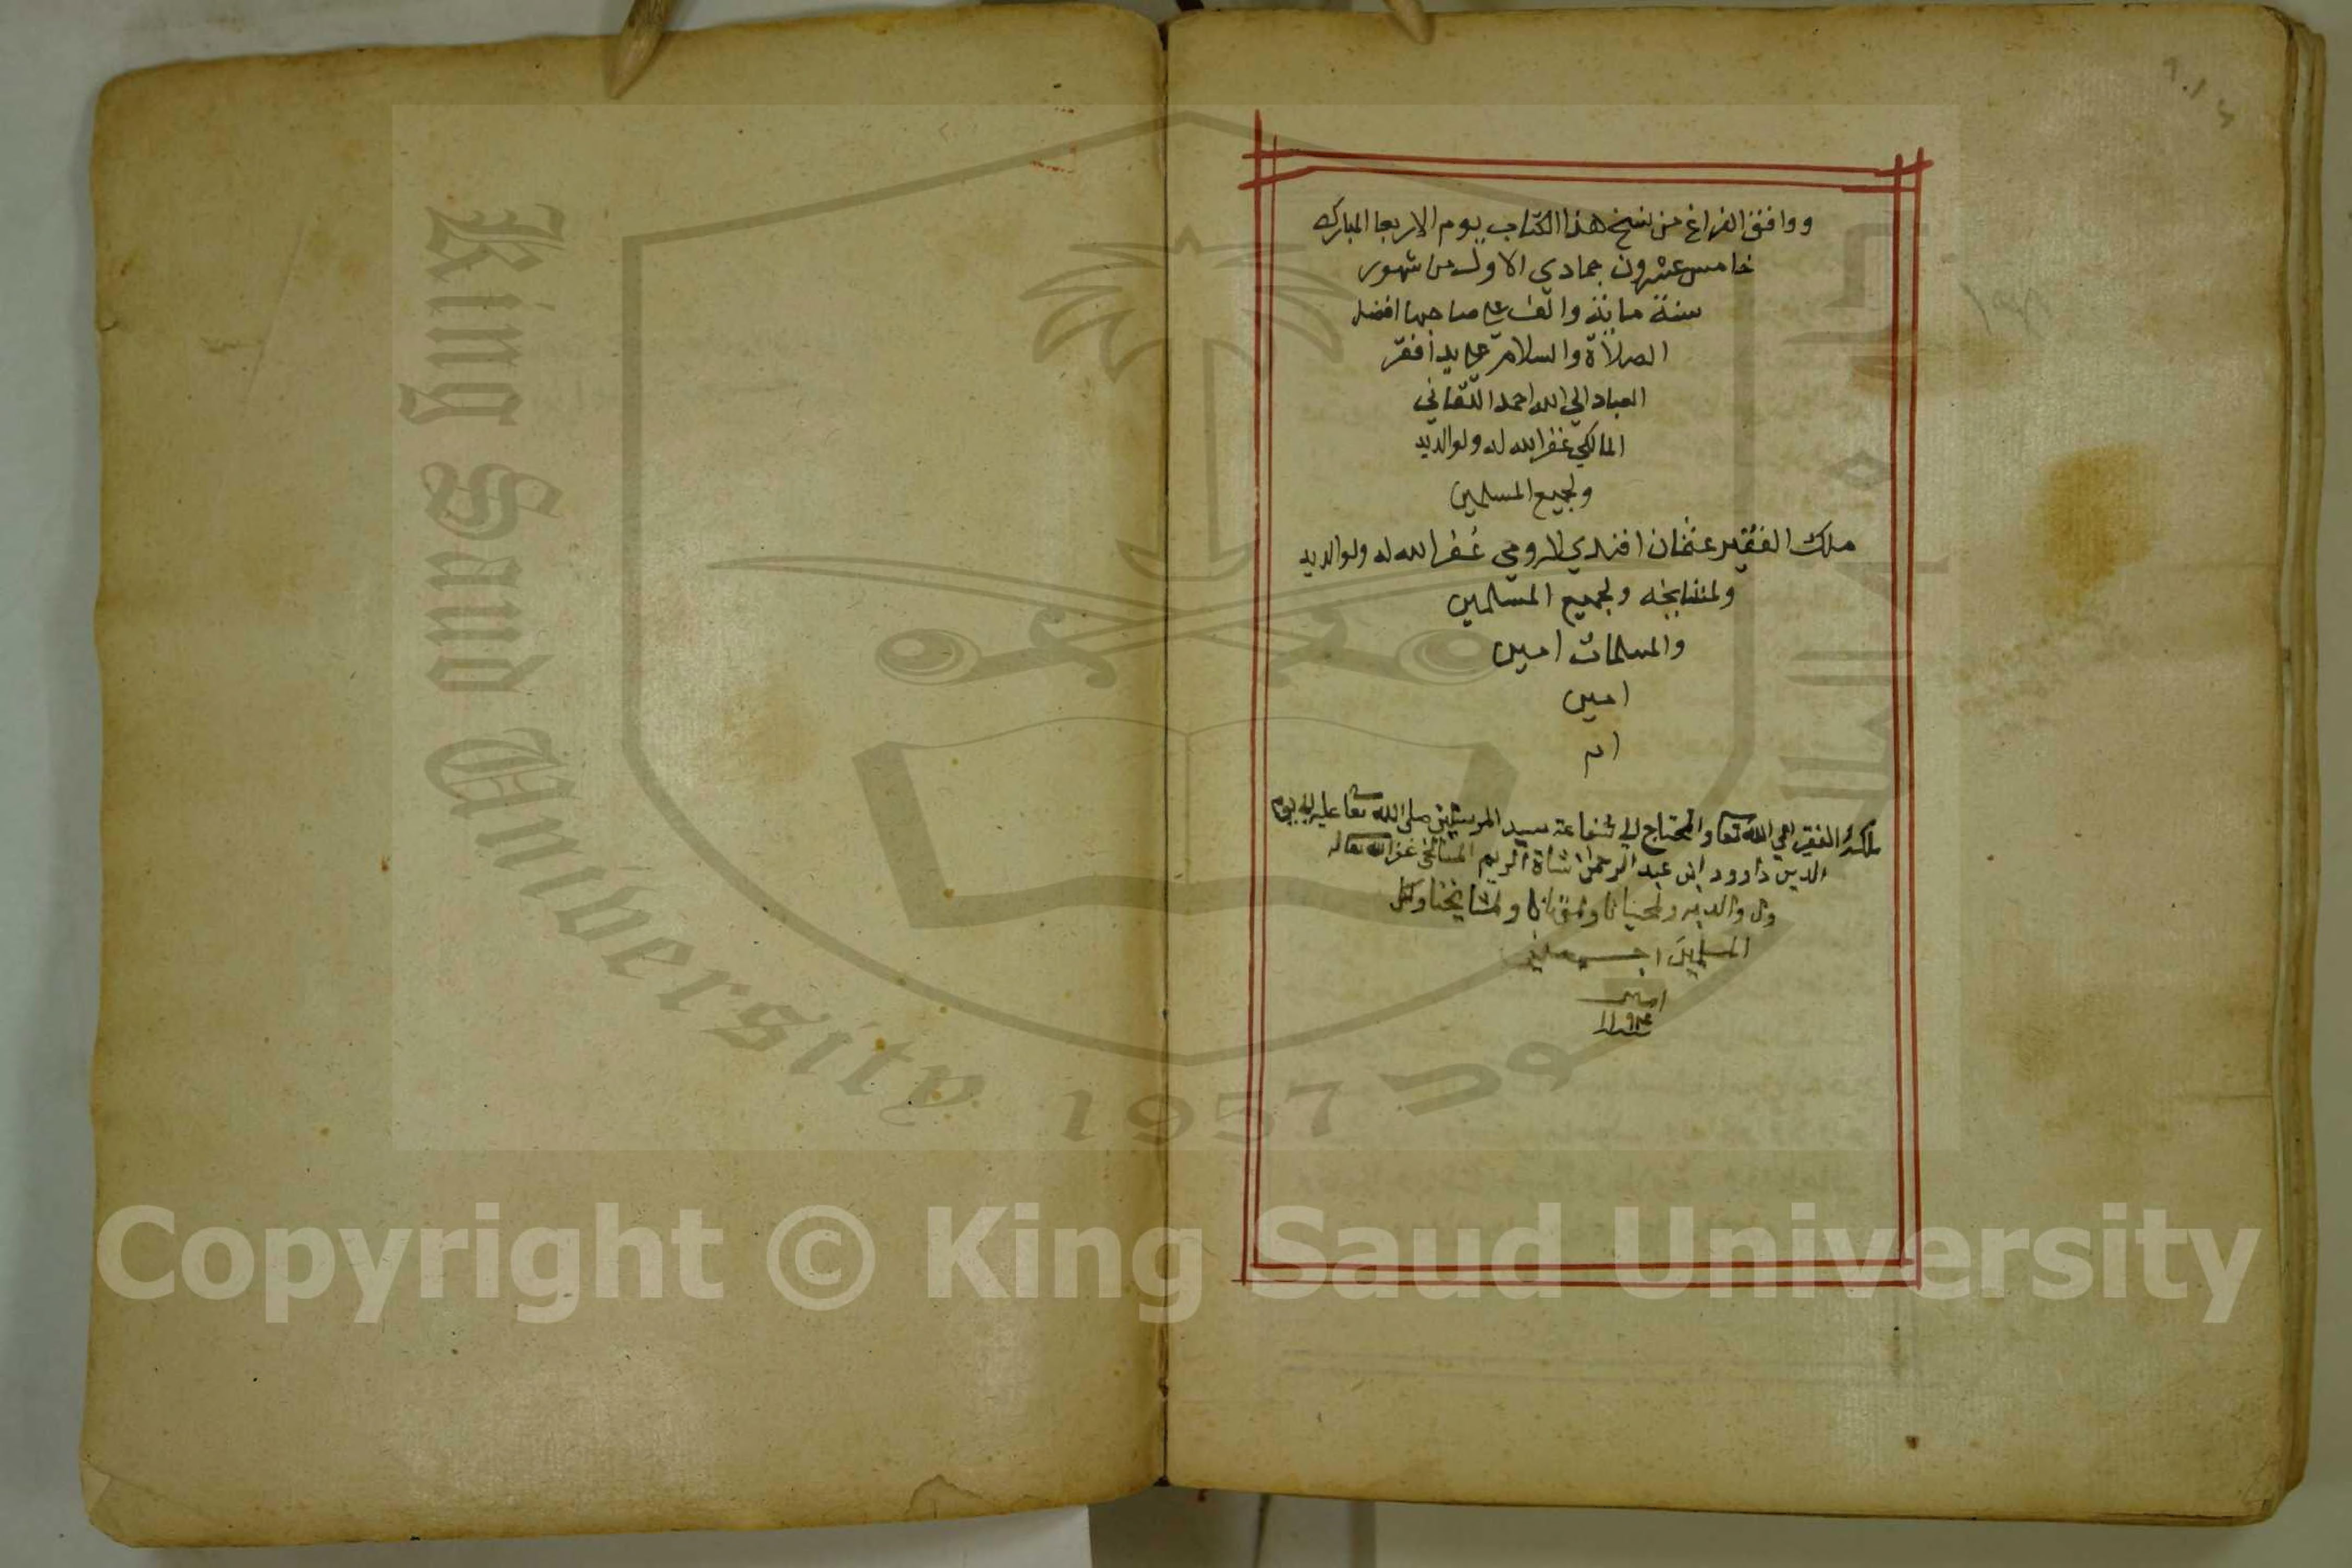 ووافق الفراغ من نسخ هذا الكتاب يوم الاربعا المبارك
خامس عشرون جمادي الاول من شهور
سنة مائة والف على صاحبها افضل
الصلاة والسلام على يد افقر
العباد الي الله احمد اللقاني
المالكي غفر الله له ولوالديه
ولجميع المسلمين
ملك الفقير عثمان افندي الرومي غفر الله له ولوالديه
ولمشايخه ولجميع المسلمين
والمسلمات امين
امين
ام
ملكه الفقير الي الله تعا والمحتاج الي شفاعة سيد المرسلين صلى الله تعا عليه الي يوم
الدين داوود ابن عبد الرحمن غفر الله تعا له
ول والديه ولمشايخنا وكل
المسلمين اجمعين
امين
King Saud University
1957
Copyright © King Saud University